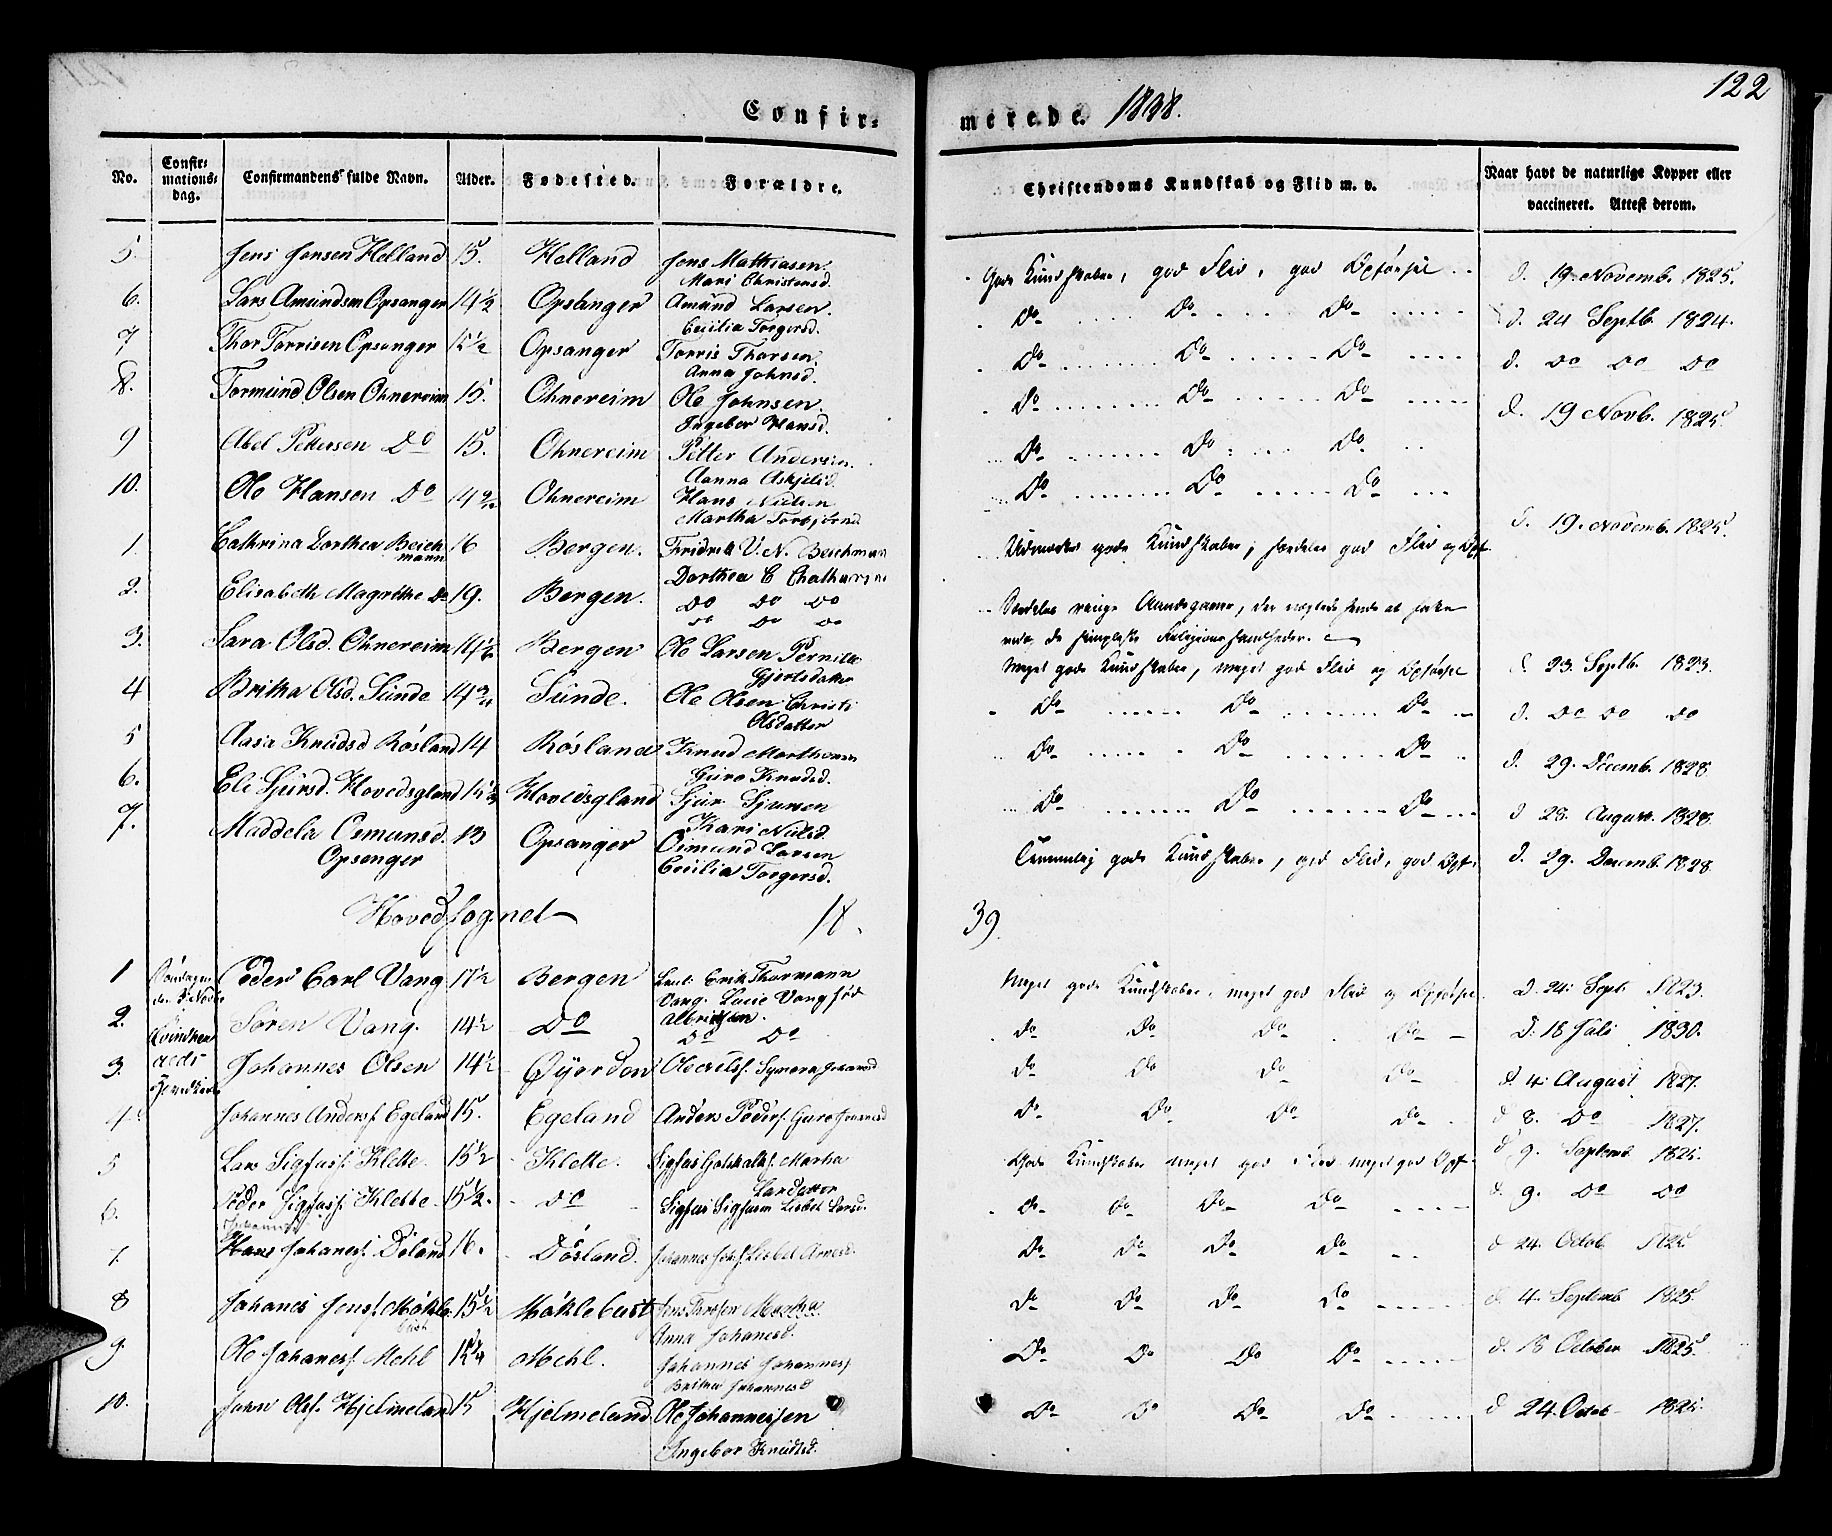 122
Confir- merede. 1838.
No. Confir-mations-dag. Confirmandens fulde Navn. Alder. Fødested. Forældre. Christendoms Kundskab og Flid m. v. Naar havt de naturlige Kopper eller vaccineret. Attest derom.
5. Jens Jensen Helland 15. Helland Jens Mathiasen. Mari Christensd. Gode Kundskaber, god Flid, god Opførsel d. 19 Novemb. 1825.
6. Lars Amundsen Opsanger 14 1/2 Opsanger Amund Larsen. Cecilia Torgersd. Do Do Do d. 24 Septb. 1824.
7 Thor Torrisen Opsanger 15 1/2 Opsanger Torris Thorsen Anna Johnsd. Do Do Do d. Do Do Do
8. Tormund Olsen Ohnereim 15. Ohnereim Ole Johnsen. Ingebor Hansd. Do Do Do d. 19 Novb. 1825
9 Abel Pettersen Do 15. Ohnereim Petter Andersen. Do Do Do
10. Ole Hansen Do 14 Ohnereim Hans Nielsen Martha Torbjörnd Do Do Do
1. Cathrina Dorthea Beichmann 16 Bergen. Fridrik V. N. Beichman Dorthea C Udmærket gode Kundskaber, særdeles god Flid og Opf. d. 19. Novemb. 1825
2. Elisabeth Magrethe Do 19. Bergen. Do Do Do Do Do Do Særdeles ringe Aandsgaver, der nægtede hende at
de simpleste Religions sandheder.
3. Sara Olsd. Ohnereim 14 1/2 Bergen Ole Larsen Pernila Gjertsdatter Meget gode Kundskaber, meget god Flid og Opførsel d. 23. Septb. 1823.
4 Britha Olsd. Sunde 14 3/4 Sunde. Ole Olsen Christi Olsdatter Do Do Do d. Do Do Do
5 Aasa Knudsd Røsland 14 Røsland Knud Guro Knudsd. Do Do Do d. 29. Decemb. 1828
6. Eli Sjursd. Hovedsgland Hovedsgland Sjur Sjursen Kari Nielsd. Do Do Do d 28. August. 1828.
7. Maddela Osmunsd. Opsanger 13 Opsanger Osmund Larsen Cecilia Torgersd. Temmelig gode Kundskaber, god Flid, god Opf. d. 29. Decemb. 1828.
Hovedsognet 18. 39.
1 Søndagen Peder Carl Vang 17 1/2 Bergen Lieut: Erik Thormann Vang. Lucie Vang fød Albrigtsen. Meget gode Kundskaber, meget god Flid og Opførsel. d. 24. Sept. 1823.
2. Søren Vang. 14 1/2 Do Do Do Do Do Do Do d: 18 Juli 1830.
3. Johannes Olsen 14 1/2 Do Do Do Do d. 4. August 1827.
4. Johannes Anders Egeland 15. Egeland Anders Peders. Guro Do Do Do Do d 8. Do 1827.
5 Lars Sigfuss. Klette. 15 1/2 Klette. Martha Larsdatter Gode Kundskaber meget god Flid meget god Opf. d 9. Septemb 1825.
6. Peder Sigfuss. Klette 15 1/2. Do Sigfus Sigfusen Lisbet Larsd. Do Do Do Do d. 9. Do Do
7. Johannes Hans Johaness. Døsland 16. Døsland. Johannes Lisbet Arnesd. Do Do Do Do d 24. Octob 1825
8 Johanes Jens. Møklebust 15 1/2 Møklebust Anna Johanesd. Do Do Do Do d. 4. Septemb 1825.
9. Ole Johaness. Mehl Mehl. Johannes Johannes Britha Johannesd Do Do Do Do d. 18 October 1825.
10. John Ols. Hjelmeland 15 Hjelmeland Ole Johannessen Ingebor Knudsd. Do Do Do Do d 24. Octob 1825.